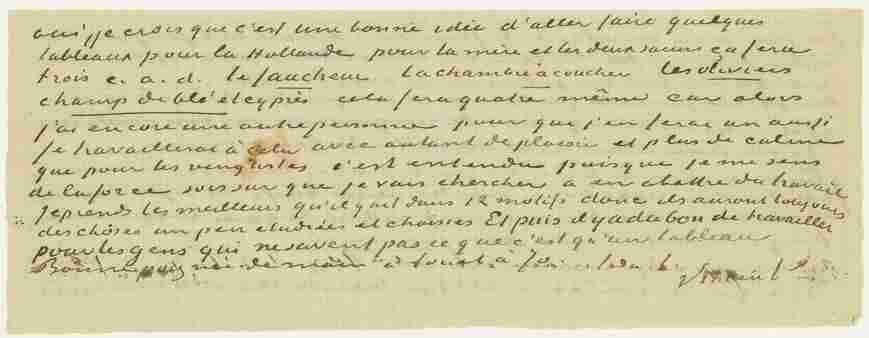 oui je crois que c'est une bonne idée d'aller faire quelques
tableaux pour la Hollande pour la mère et les deux soeurs ça fera
trois c. a. d. le faucheur la chambre à coucher les oliviers
champ de blé et cyprès cela fera quatre même car alors
j'ai encore une autre personne pour qui j'en ferai un aussi
Je travaillerai à cela avec autant de plaisir et plus de calme
que pour les vingtistes c'est entendu puisque je me sens
de la force sois sur que je vais chercher à en abattre du travail
Je prends les meilleurs qu'il y ait dans 12 motifs donc ils auront toujours
des choses un peu etudiées et choisies Et puis il y a du bon de travailler
pour les gens qui ne savent pas ce que c'est qu'un tableau
Bonne poignée de main à toi et à
Vincent